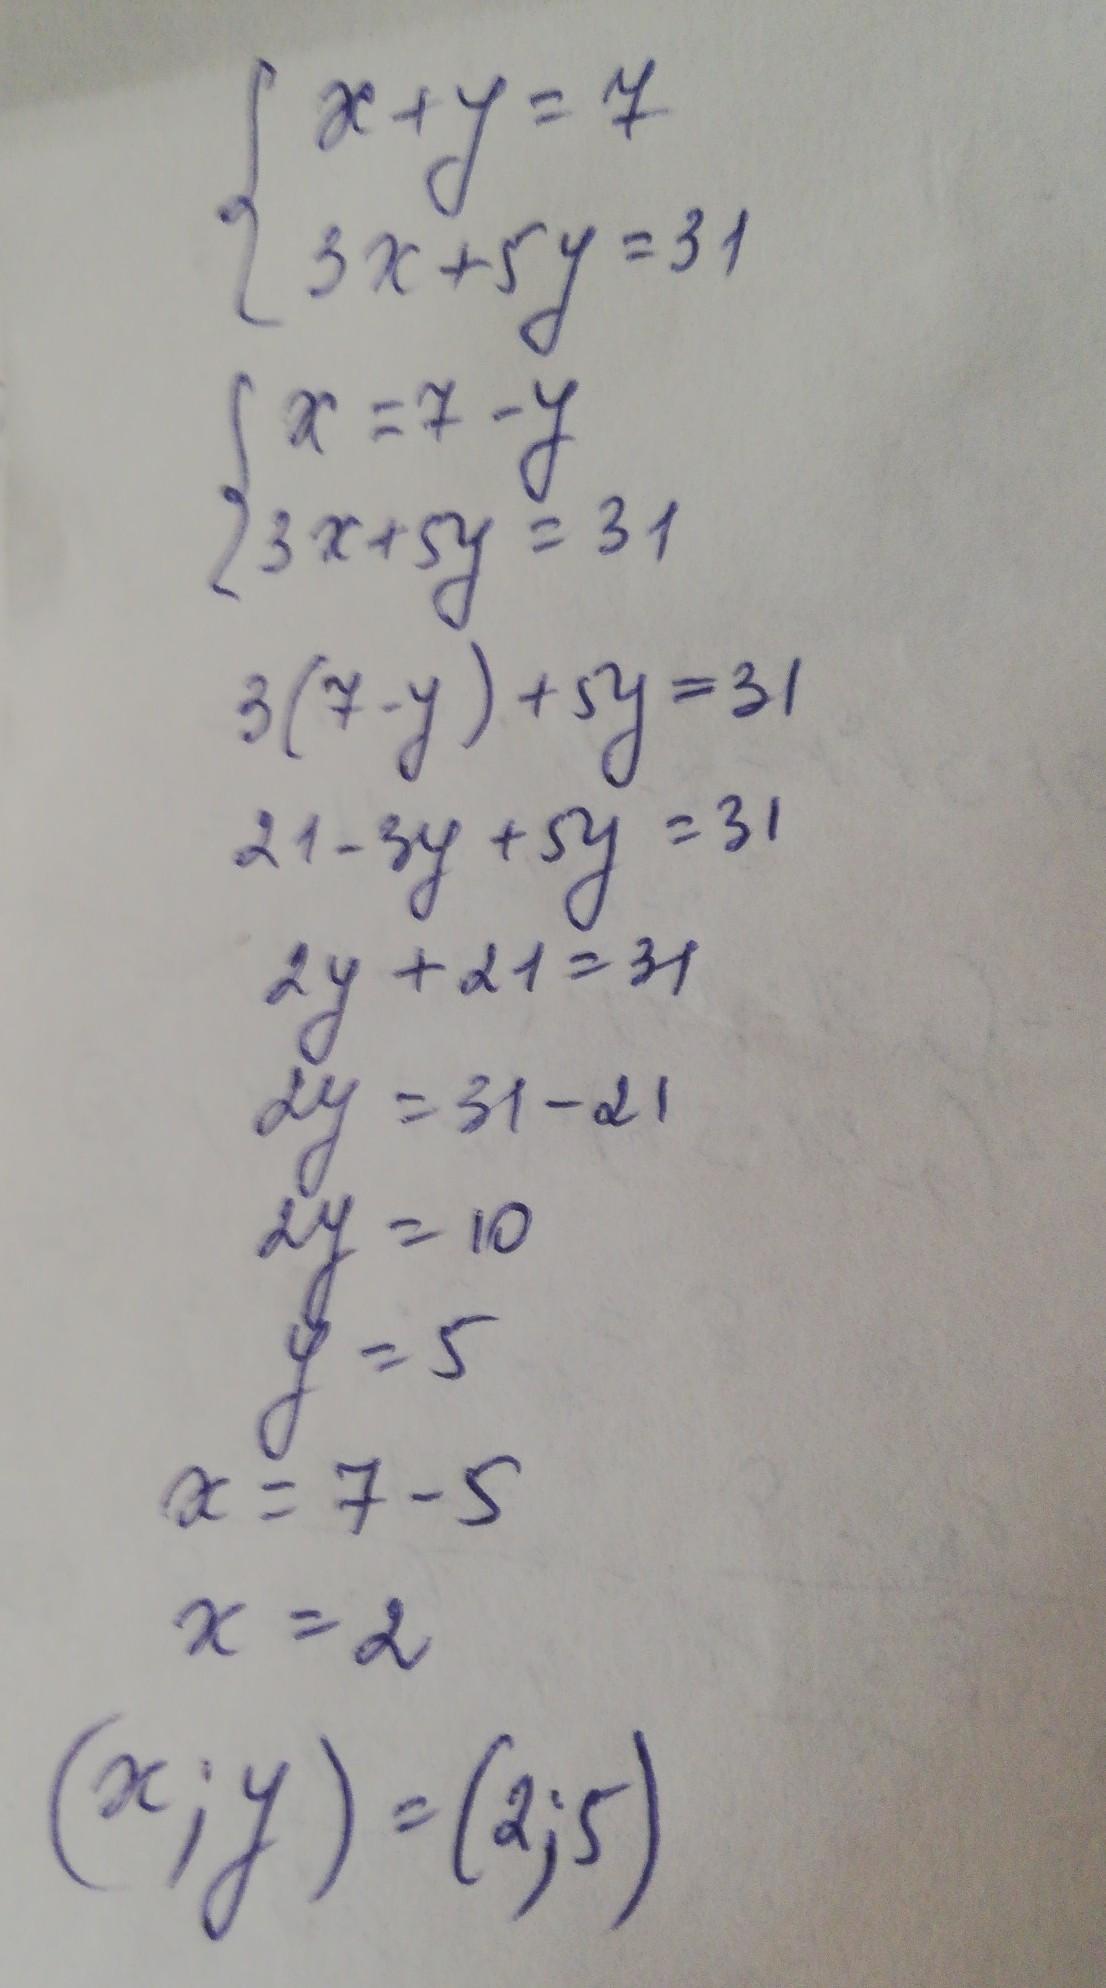 x+y=7
3x+5y=31
x=7-y
3x+5y=31
3(7-y)+5y=31
21-3y+5y=31
2y+21=31
2y=31-21
2y=10
y=5
x=7-5
x=2
(x;y)=(2;5)